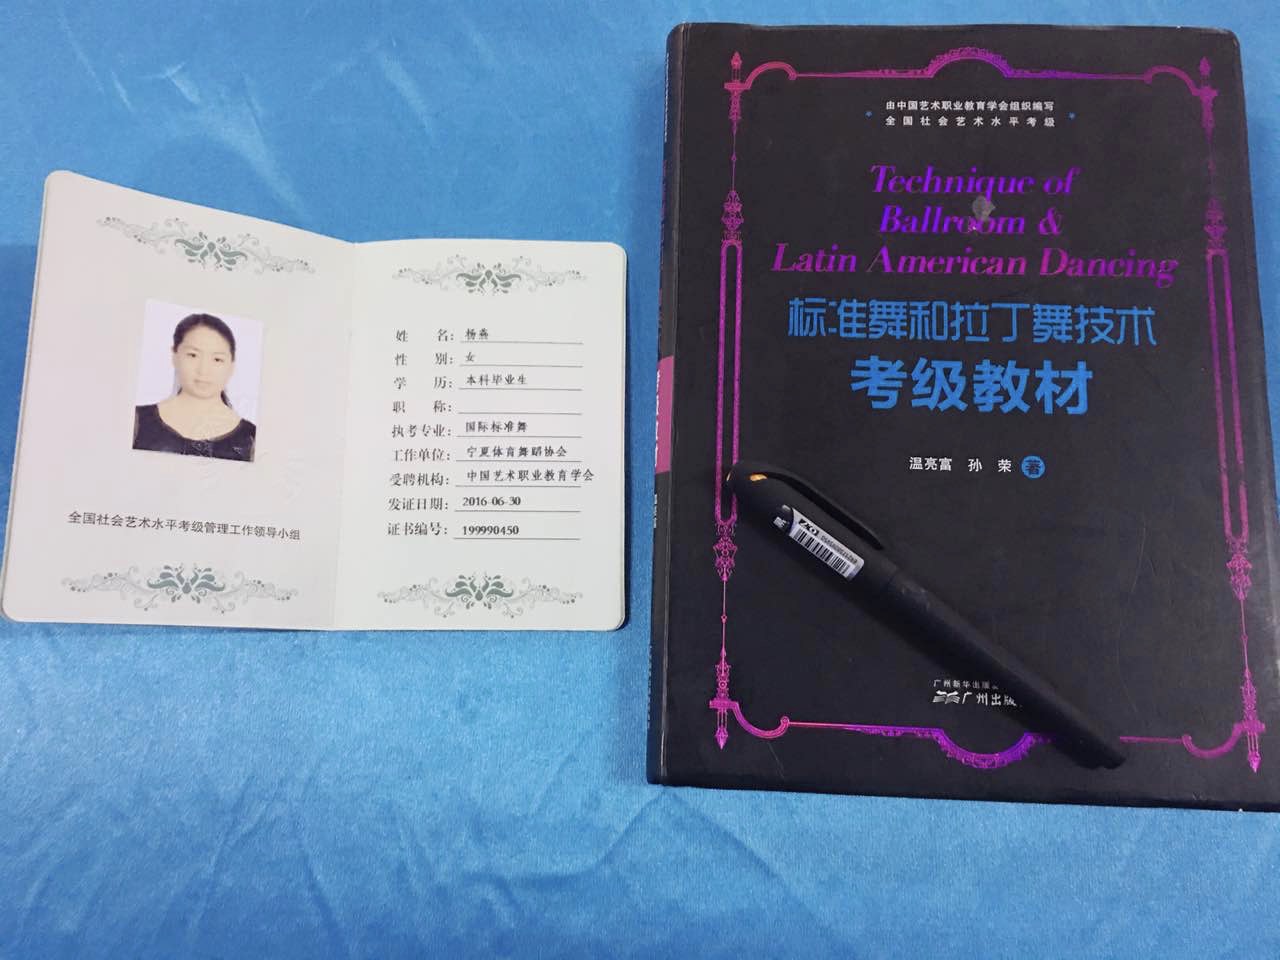 全国社会艺术水平考级管理工作领导小组
姓 名：杨燕
性 别：女
学 历：本科毕业生
职 称：
执考专业：国际标准舞
工作单位：宁夏体育舞蹈协会
受聘机构：中国艺术职业教育学会
发证日期：2016-06-30
证书编号：199990450
由中国艺术职业教育学会组织编写
全国社会艺术水平考级
Technique of
Ballroom &
Latin American Dancing
标准舞和拉丁舞技术
考级教材
温亮富 孙 荣 著
广州新华出版发
广州出版